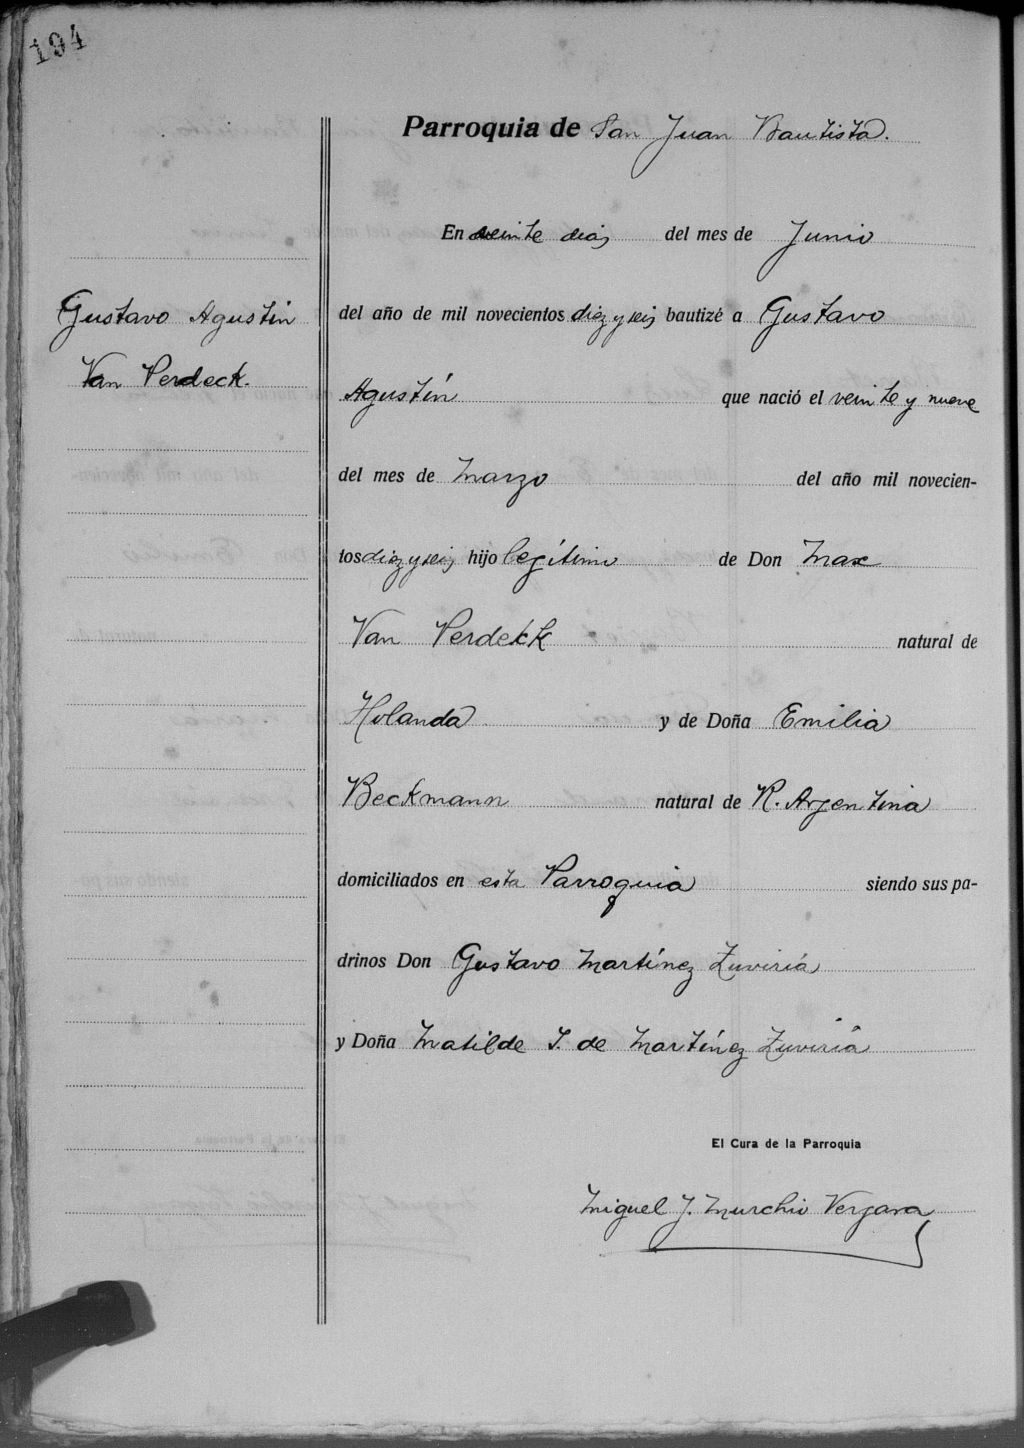 194
Parroquia de San Juan Bautista.
En veinte dias del mes de Junio
Gustavo Agustín
del año de mil novecientos diez y seis bautizé a Gustavo
Van Perdeck.
Agustín que nació el veinte y nueve
del mes de Marzo del año mil novecien-
tos diez y seis hijo legítimo de Don Max
Van Perdekk natural de
Holanda y de Doña Emilia
Beckmann natural de R. Argentina
domiciliados en esta Parroquia siendo sus pa-
drinos Don Gustavo Martínez Zuviría
y Doña Matilde I. de Martínez Zuviría
El Cura de la Parroquia
Miguel J. Murchio Vergara